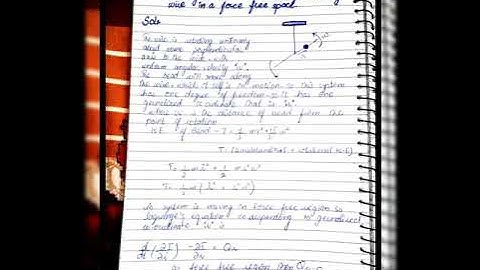 wire in a force free space
Soln
The wire is rotating uniformly
about some perpendicular
axis to the wire with
uniform angular velocity "ω".
The bead will move along
the wire, which itself is in motion so this system
has one degree of freedom so it has one
generalized coordinate that is "r".
where "r" is the distance of bead from the
point of rotation
K.E of bead = T =
T = (Translational K.E + rotational K.E)
T = 1/2 m
T = 1/2 m (
As system is moving in force free region so
Lagrange's equation corresponding to generalized
coordinate "r" is
d/dt (∂T/∂ṙ) - ∂T/∂r = Qr
as force free region